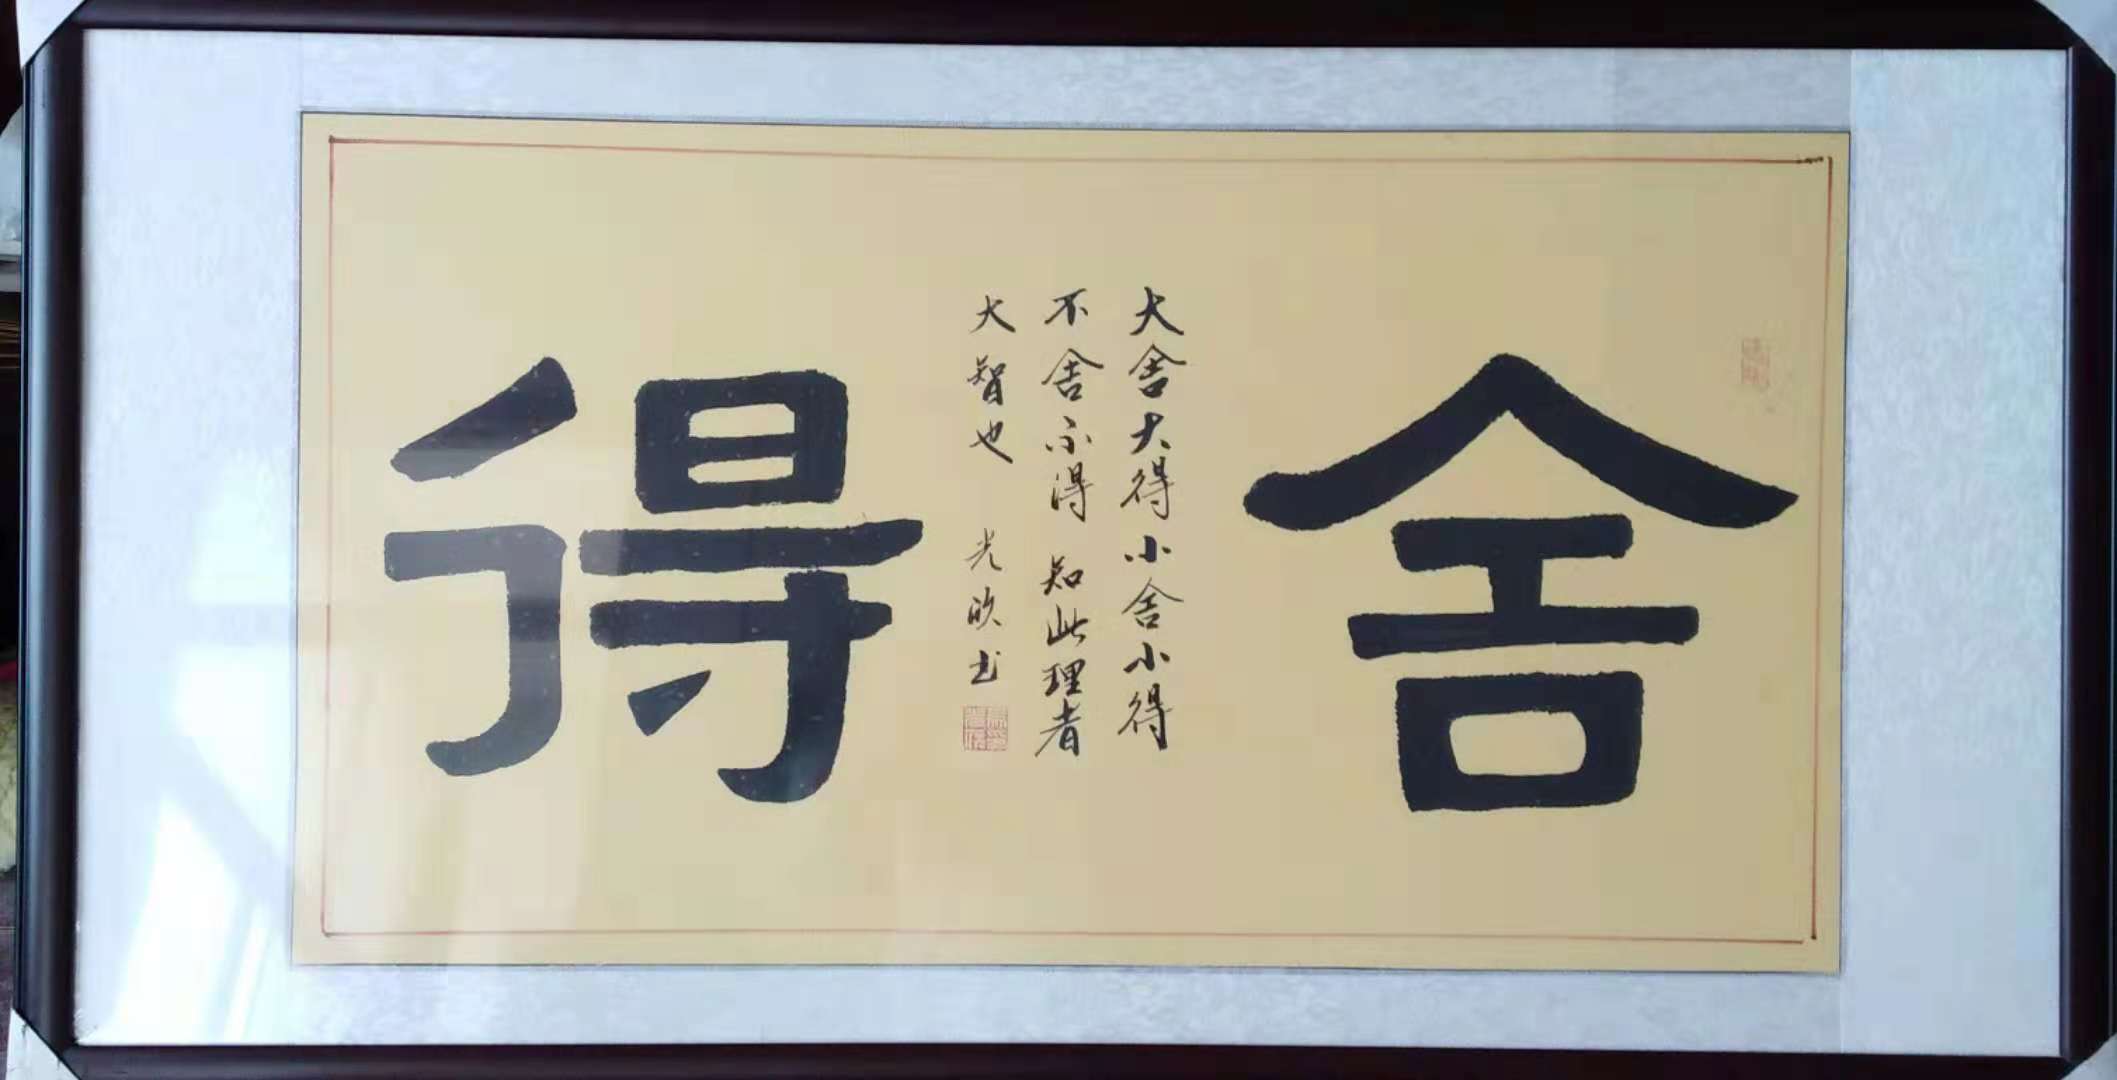 舍
大舍大得小舍小得
不舍不得知此理者
大智也 光欣书
得